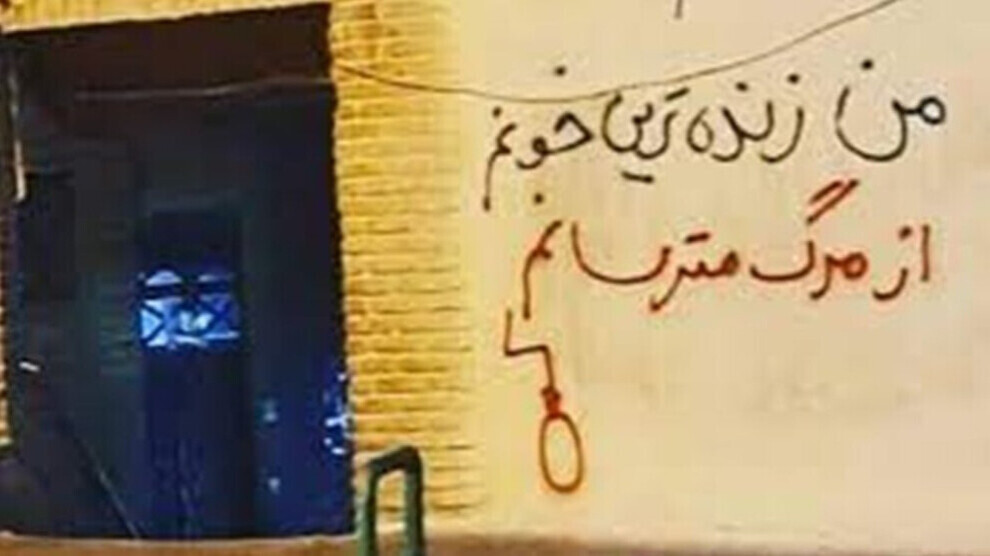 من زنده ترین خونم
از مرگ مترسانم